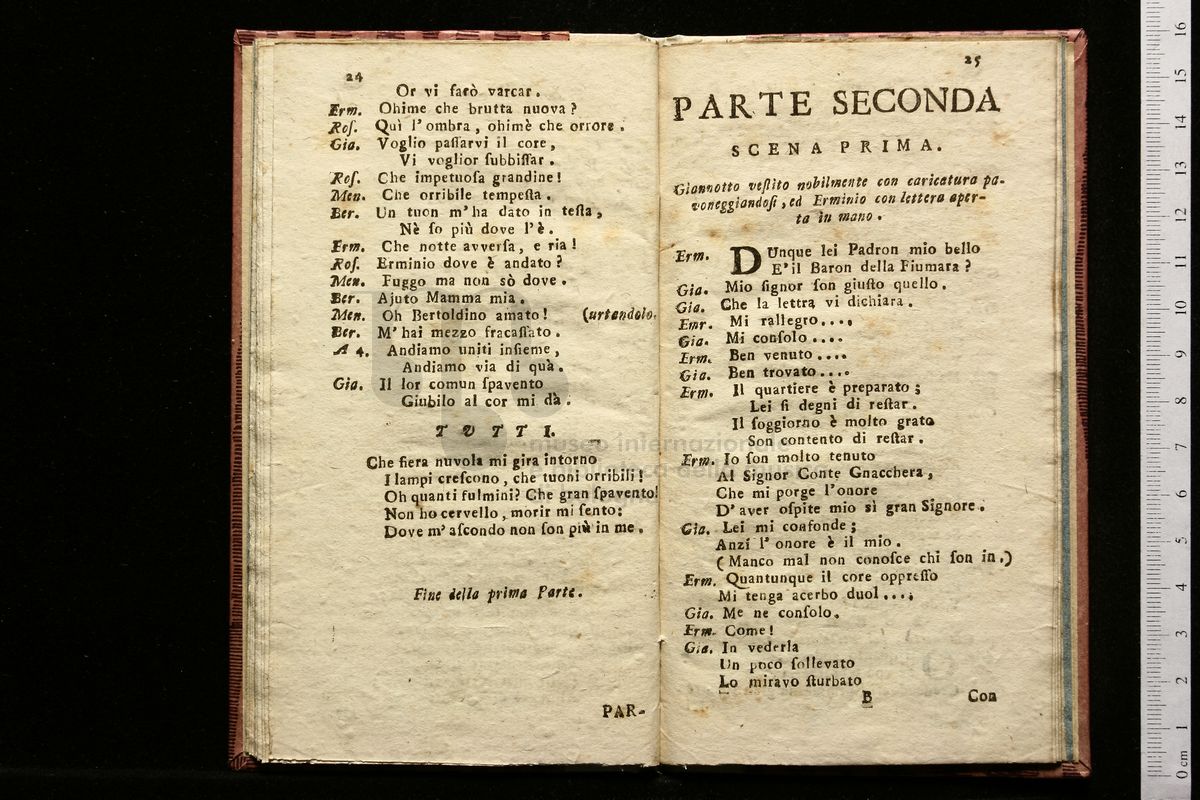 24
Or vi farò varcar.
Erm. Ohime che brutta nuova?
Roſ. Quì l'ombra, ohimè che orrore.
Gia. Voglio paſſarvi il core,
Vi voglior ſubbiſſar.
Roſ. Che impetuoſa grandine!
Men. Che orribile tempeſta.
Ber. Un tuon m'ha dato in teſta,
Nè ſo più dove l'è.
Erm. Che notte avverſa, e ria!
Roſ. Erminio dove è andato?
Men. Fuggo ma non sò dove.
Ber. Ajuto Mamma mia.
Men. Oh Bertoldino amato! (urtandolo.
Ber. M'hai mezzo fracaſſato.
A 4. Andiamo uniti inſieme,
Andiamo via di quà.
Gia. Il lor comun ſpavento
Giubilo al cor mi dà.
TUTTI.
Che fiera nuvola mi gira intorno
I lampi creſcono, che tuoni orribili!
Oh quanti fulmini? Che gran ſpavento!
Non ho cervello, morir mi ſento:
Dove m'aſcondo non ſon più in me.
Fine della prima Parte.
PAR-
25
PARTE SECONDA
SCENA PRIMA.
Giannotto veſtito nobilmente con caricatura pa-
voneggiandoſi, ed Erminio con lettera aper-
ta in mano.
Erm. DUnque lei Padron mio bello
E' il Baron della Fiumara?
Gia. Mio ſignor ſon giuſto quello.
Gia. Che la lettra vi dichiara.
Emr. Mi rallegro....
Gia. Mi conſolo....
Erm. Ben venuto....
Gia. Ben trovato....
Erm. Il quartiere è preparato;
Lei ſi degni di reſtar.
Il ſoggiorno è molto grato
Son contento di reſtar.
Erm. Io ſon molto tenuto
Al Signor Conte Gnacchera,
Che mi porge l'onore
D'aver oſpite mio sì gran Signore.
Gia. Lei mi confonde;
Anzi l'onore è il mio.
(Manco mal non conoſce chi ſon in.)
Erm. Quantunque il core oppreſſo
Mi tenga acerbo duol....
Gia. Me ne conſolo.
Erm. Come!
Gia. In vederla
Un poco ſollevato
Lo miravo ſturbato
B Con
museo internazionale
0 cm 1 2 3 4 5 6 7 8 9 10 11 12 13 14 15 16